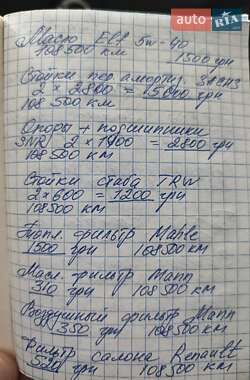 RIA.com
Масло Elf 5w-40
108 500 км 1500 грн
Стойки пер амортиз.
2 x 2800 = грн
108 500 км
Опоры + подшипники
SNR 2 x 1400 = 2800 грн
108 500 км
Стойки стаба TRW
2 x 600 = 1200 грн
108500 км
Топл. фильтр Mahle
1500 грн 108 500 км
Масл. фильтр Mann
310 грн 108 500 км
Воздушный фильтр Mann
350 грн 108 500 км
Фильтр салона Renault
520 грн 108 500 км